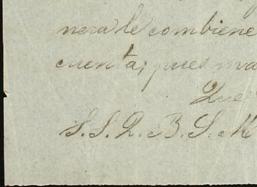 nera le combiene
cuenta; pues
Que
S. S. Q. B. S. M